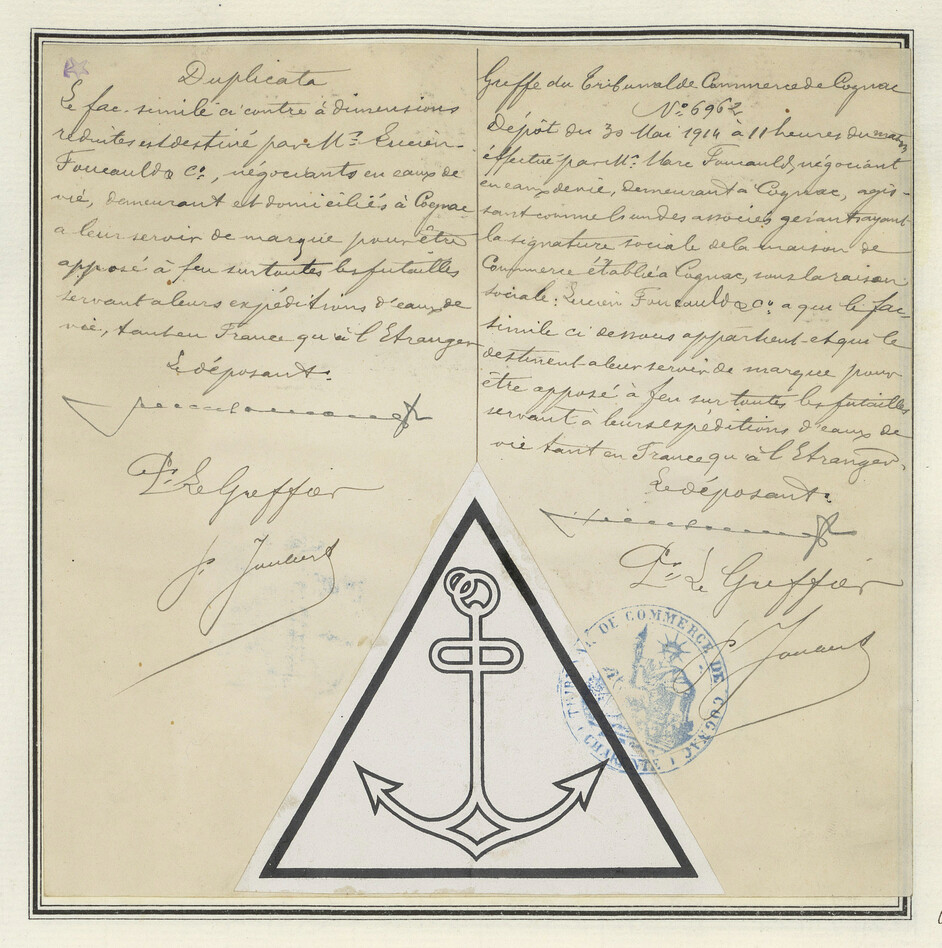 Duplicata
Le fac-simile ci contre à dimensions
reduites est destiné par Mrs Lucien-
Foucauld & Co, négociants en eaux de
vie, demeurant et domiciliés à Cognac
a leur servir de marque pour être
apposé à feu sur toutes les futailles
servant a leurs expéditions d'eaux de
vie, tant en France qu'à l'Etranger
Le déposant:
Pr Le Greffier
P. Joubert
Greffe du Tribunal de Commerce de Cognac
No 6962
Dépôt du 30 Mai 1914 à 11 heures du matin
éffectué par Mr Marc Foucauld, négociant
en eaux de vie, demeurant à Cognac, agis-
sant comme l'un des associés gérants ayant
la signature sociale de la maison de
Commerce établie à Cognac, sous la raison
sociale: Lucien Foucauld & Co a qui le fac-
simile ci dessous appartient et qui le
destinent a leur servir de marque pour
être apposé à feu sur toutes les futailles
servant à leurs expéditions d'eaux de
vie tant en France qu'à l'Etranger.
Le déposant:
Pr Le Greffier
P. Joubert
TRIBUNAL DE COMMERCE DE COGNAC
CHARENTE